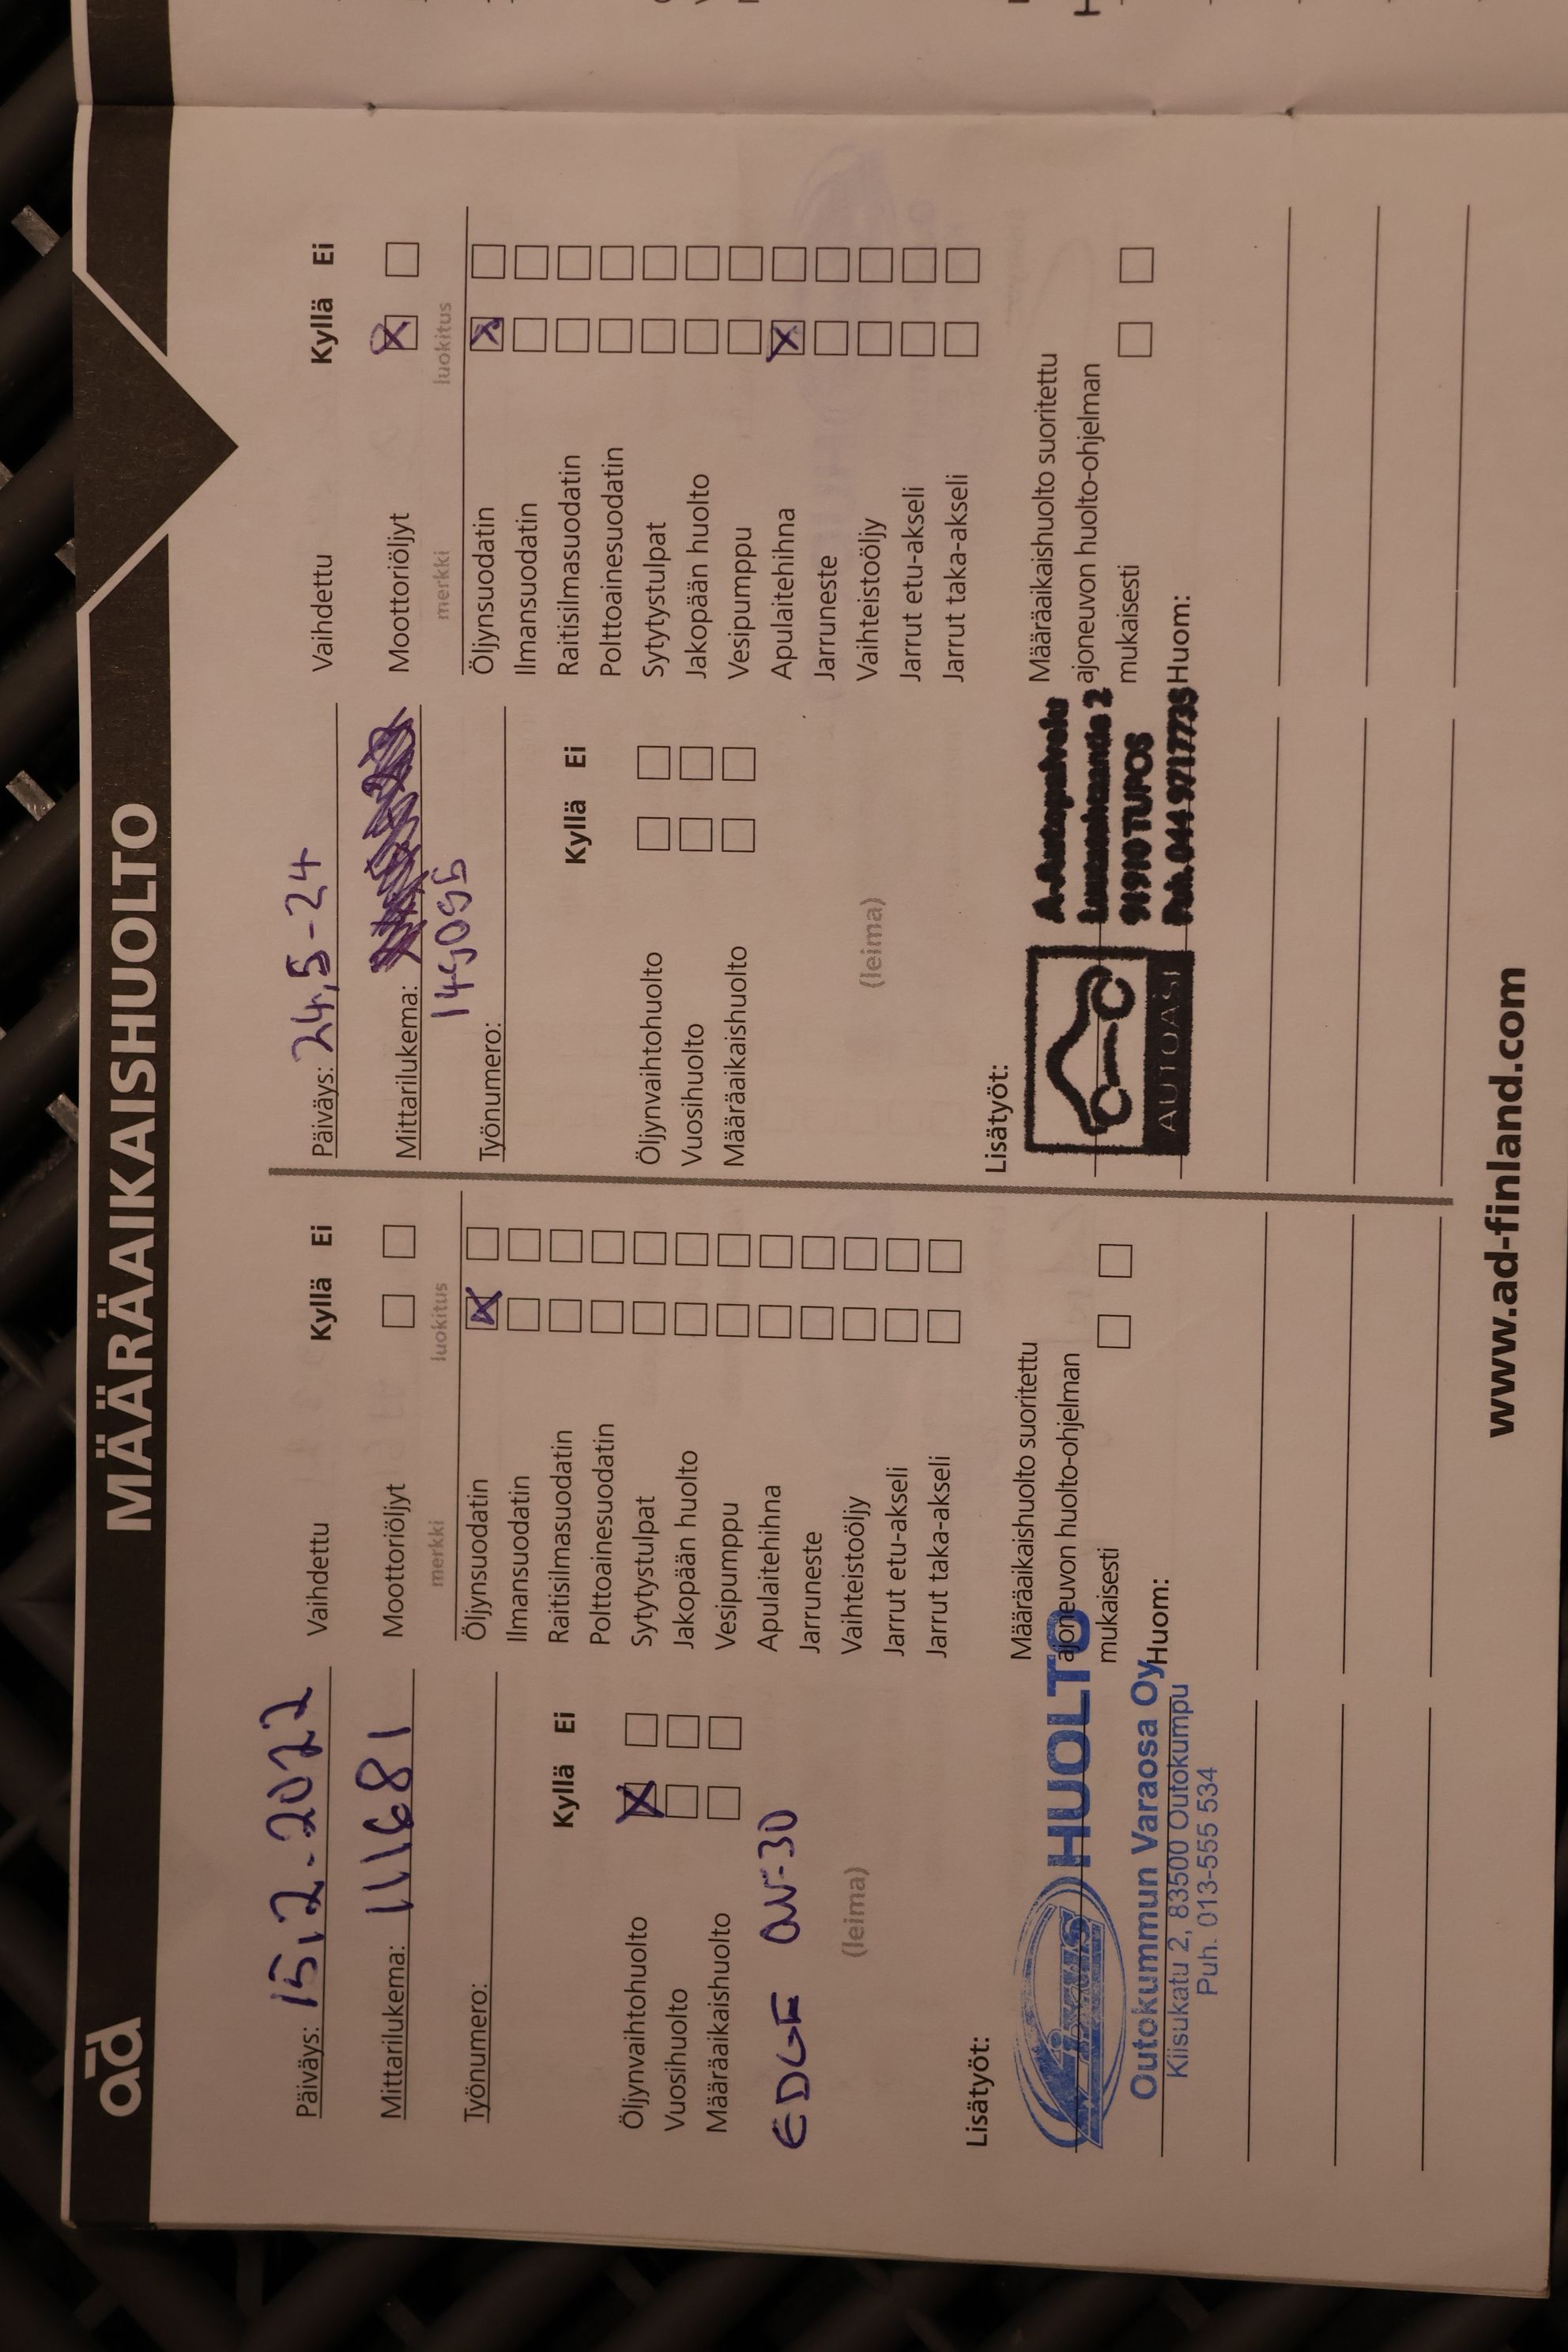 ad MÄÄRÄAIKAISHUOLTO
Päiväys: 15.2.2022
Mittarilukema: 111681
Työnumero:
Kyllä Ei
Öljynvaihtohuolto
Vuosihuolto
Määräaikaishuolto
EDGE 0W-30
(leima)
Lisätyöt:
HUOLTO
Outokummun Varaosa Oy
Kiisukatu 2, 83500 Outokumpu
Puh. 013-555 534
Vaihdettu Kyllä Ei
Moottoriöljyt
merkki luokitus
Öljynsuodatin
Ilmansuodatin
Raitisilmasuodatin
Polttoainesuodatin
Sytytystulpat
Jakopään huolto
Vesipumppu
Apulaitehihna
Jarruneste
Vaihteistoöljy
Jarrut etu-akseli
Jarrut taka-akseli
Määräaikaishuolto suoritettu
ajoneuvon huolto-ohjelman
mukaisesti
Huom:
Päiväys: 24,5-24
Mittarilukema:
145095
Työnumero:
Kyllä Ei
Öljynvaihtohuolto
Vuosihuolto
Määräaikaishuolto
(leima)
Lisätyöt:
AUTOASI
A-Autopalvelu
91910 TUPOS
Puh. 044 9717735
Vaihdettu Kyllä Ei
Moottoriöljyt
merkki luokitus
Öljynsuodatin
Ilmansuodatin
Raitisilmasuodatin
Polttoainesuodatin
Sytytystulpat
Jakopään huolto
Vesipumppu
Apulaitehihna
Jarruneste
Vaihteistoöljy
Jarrut etu-akseli
Jarrut taka-akseli
Määräaikaishuolto suoritettu
ajoneuvon huolto-ohjelman
mukaisesti
Huom:
www.ad-finland.com